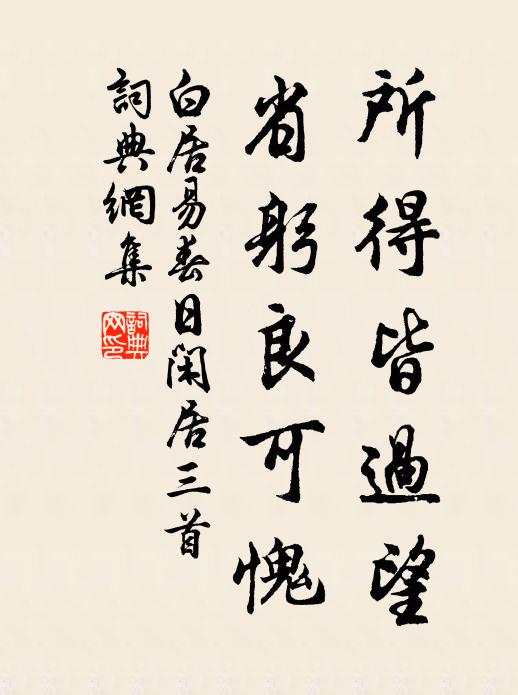 所得皆過望
省躬良可愧
白居易春日閑居三首
詞典網集
詞典网印